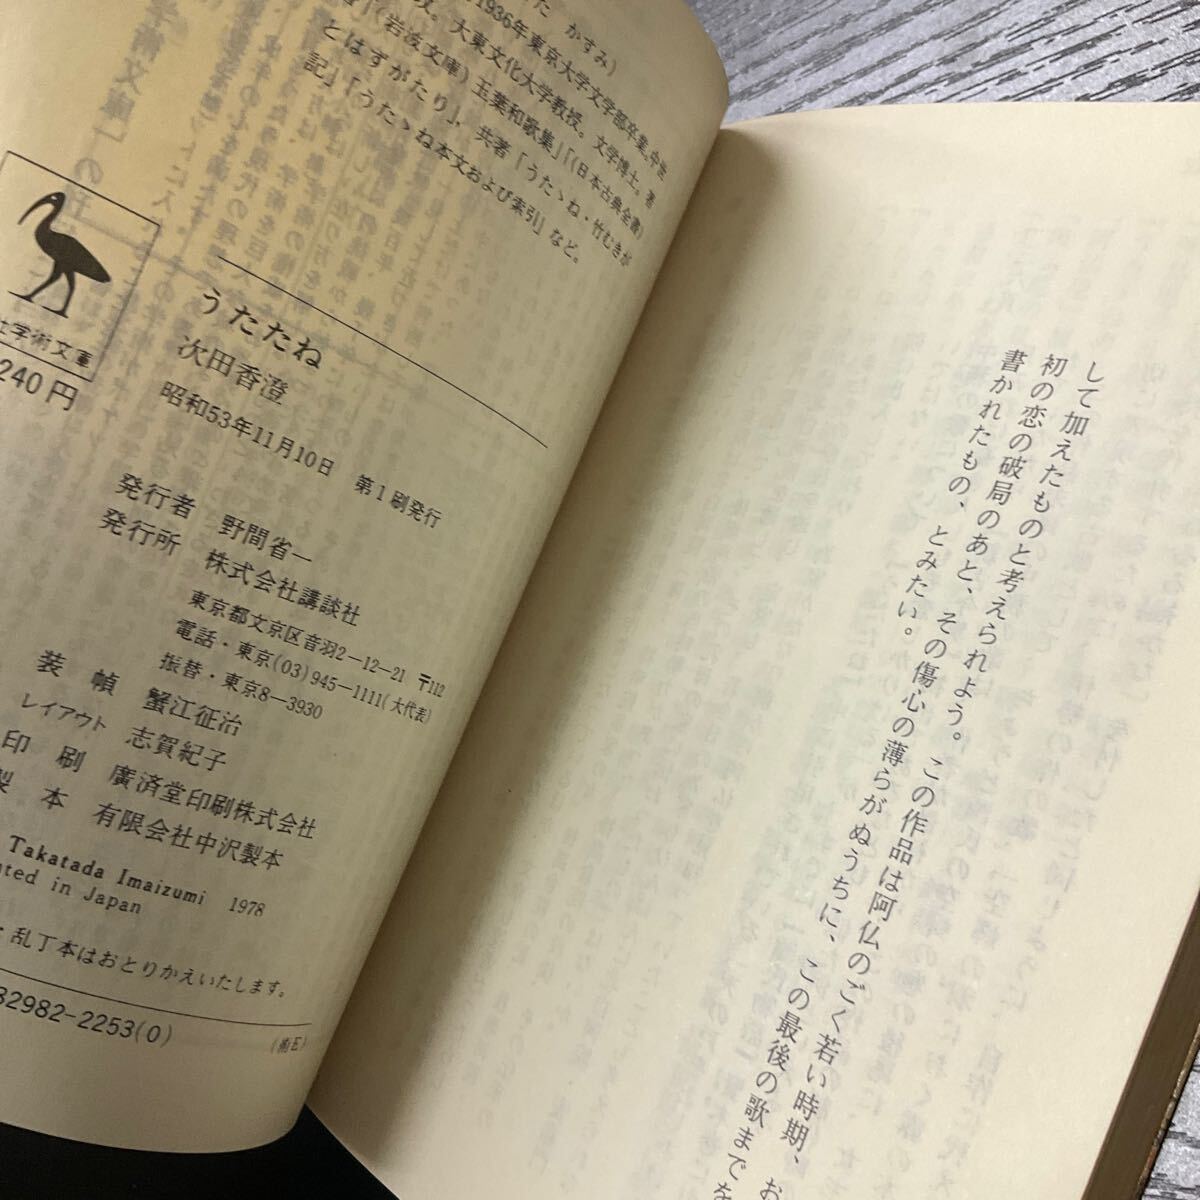 た かすみ)
1936年東京大学文学部卒業。中世
攻。大東文化大学教授。文学博士。著
」(岩波文庫)玉葉和歌集」「(日本古典全書)
とはずがたり」，共著「うたゝね・竹むきが
記」「うたゝね本文および索引」など。
学術文庫
240円
うたたね
次田香澄
昭和53年11月10日 第1刷発行
発行者 野間省一
発行所 株式会社講談社
東京都文京区音羽2－12－21 〒112
電話・東京(03)945－1111(大代表)
振替・東京8－3930
装幀 蟹江征治
レイアウト 志賀紀子
印刷 廣済堂印刷株式会社
製本 有限会社中沢製本
Takatada Imaizumi 1978
nted in Japan
乱丁本はおとりかえいたします。
32982-2253(0)
(術E)
して加えたものと考えられよう。この作品は阿仏のごく若い時期、お
初の恋の破局のあと、その傷心の薄らがぬうちに、この最後の歌までを
書かれたもの、とみたい。